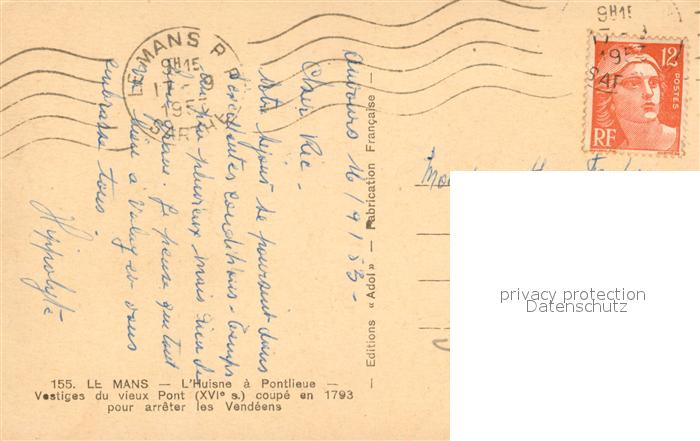 LE MANS R.P.
9H15
17-9
195
SARTHE
9H15
17-9
195
SAR
12F
POSTES
RF
16/9/53-
Cher Ric-
Notre séjour se poursuit dans
d'excellentes conditions- temps
un peu pluvieux mais rien de
Je pense que tout
va bien à
embrasse tous.
Hippolyte
Editions «Adol» — Fabrication Française —
155. LE MANS — L'Huisne à Pontlieue —
Vestiges du vieux Pont (XVIe s.) coupé en 1793
pour arrêter les Vendéens
privacy protection
Datenschutz